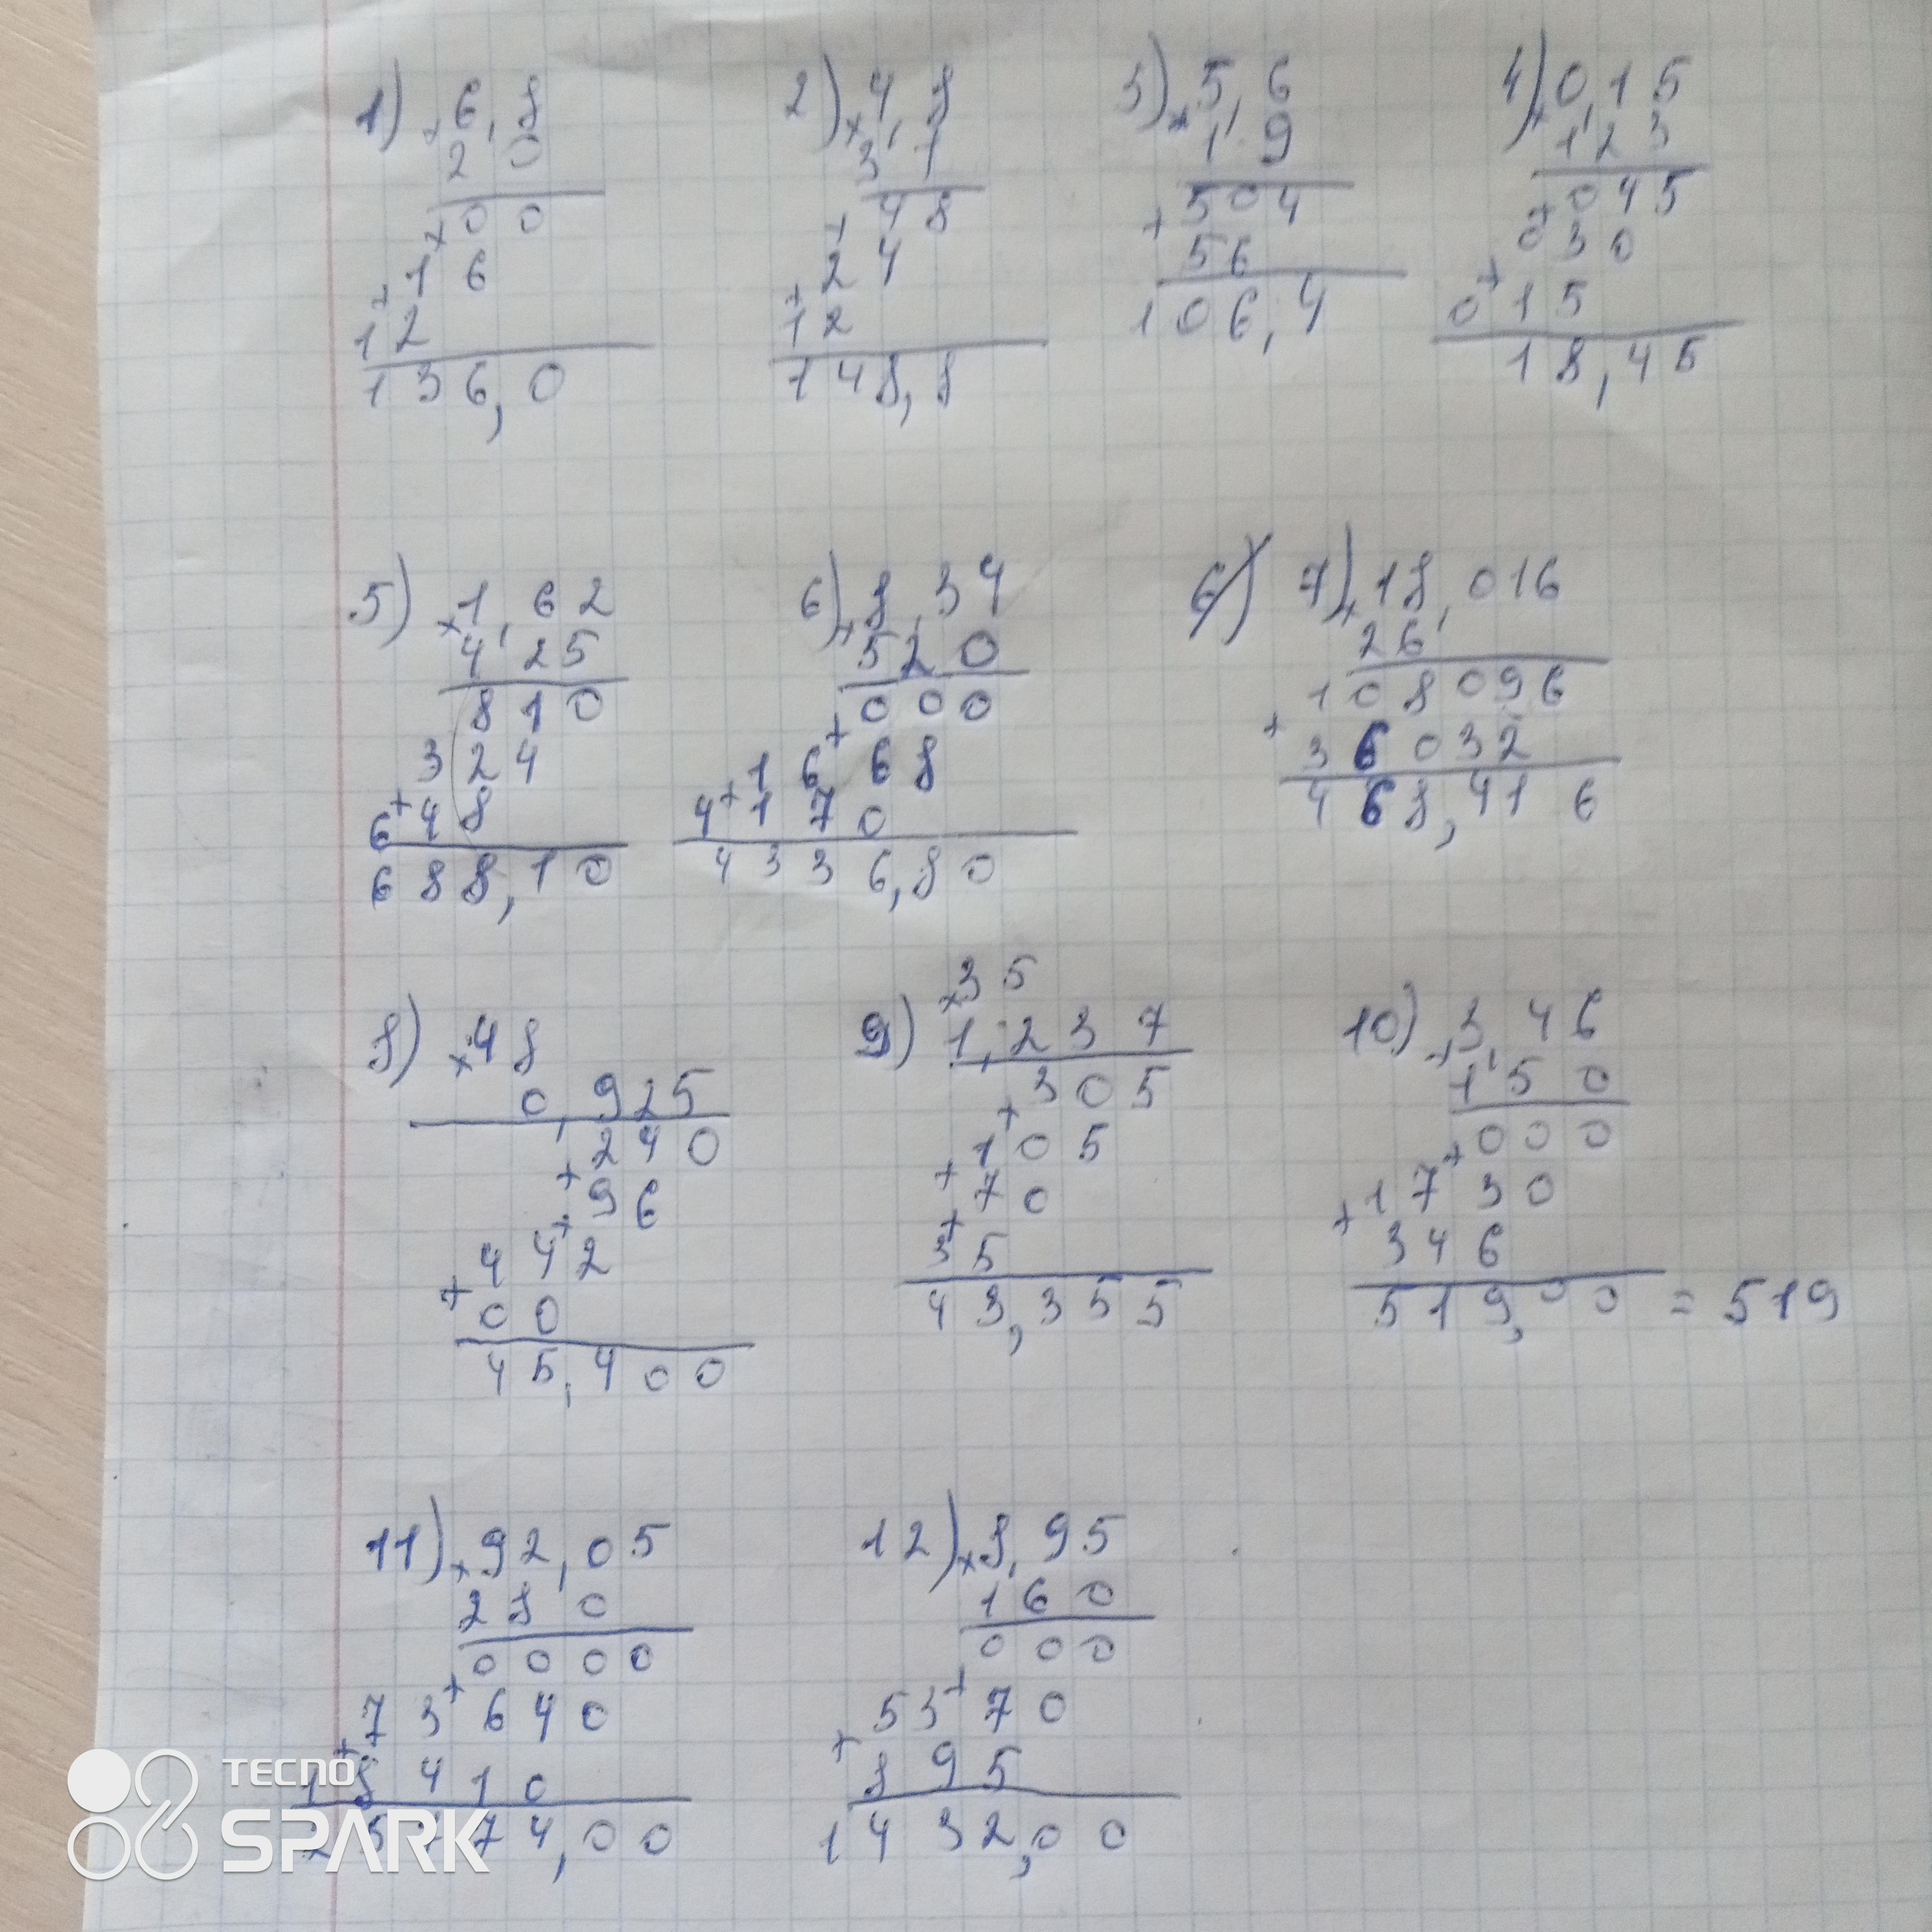 1) × 6,8
20
+ 00
+ 16
12
136,0
2) × 4,8
31
+ 48
+ 24
12
148,8
3) × 5,6
19
+ 504
56
106,4
4) × 0,15
123
+ 045
+ 030
015
18,45
5) × 1,62
425
810
324
+ 648
688,10
6) × 8,34
520
+ 000
+ 1668
4170
4336,80
6)
7) × 18,016
26
+ 108096
36032
468,416
8) × 48
0,925
+ 240
+ 96
+ 442
00
45,400
9) × 35
1,237
+ 305
+ 105
+ 70
35
43,355
10) × 3,46
150
+ 000
+ 1730
346
519,00 = 519
11) × 92,05
280
+ 0000
+ 73640
18410
74,00
12) × 8,95
160
+ 000
+ 5370
895
1432,00
TECNO
SPARK